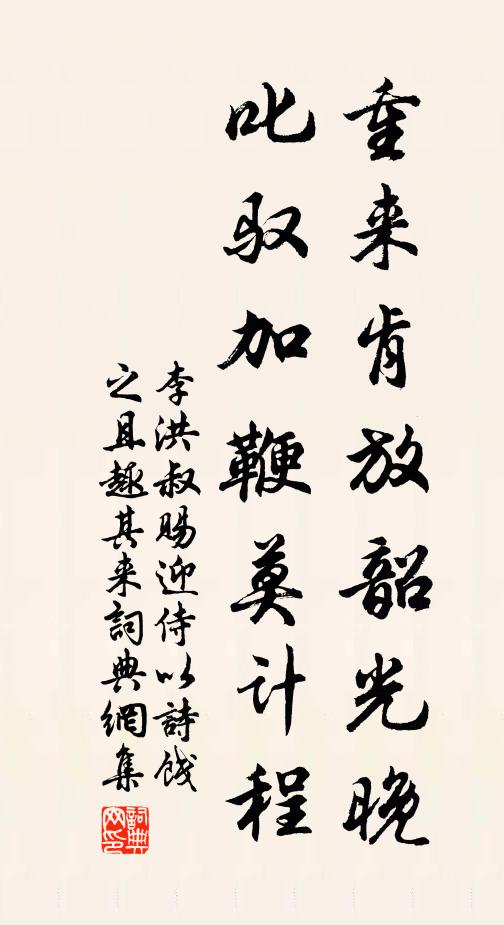 重来肯放韶光晚
叱驭加鞭莫计程
李洪叔赐迎侍以詩餞
之且趣其来詞典網集
詞典
网印